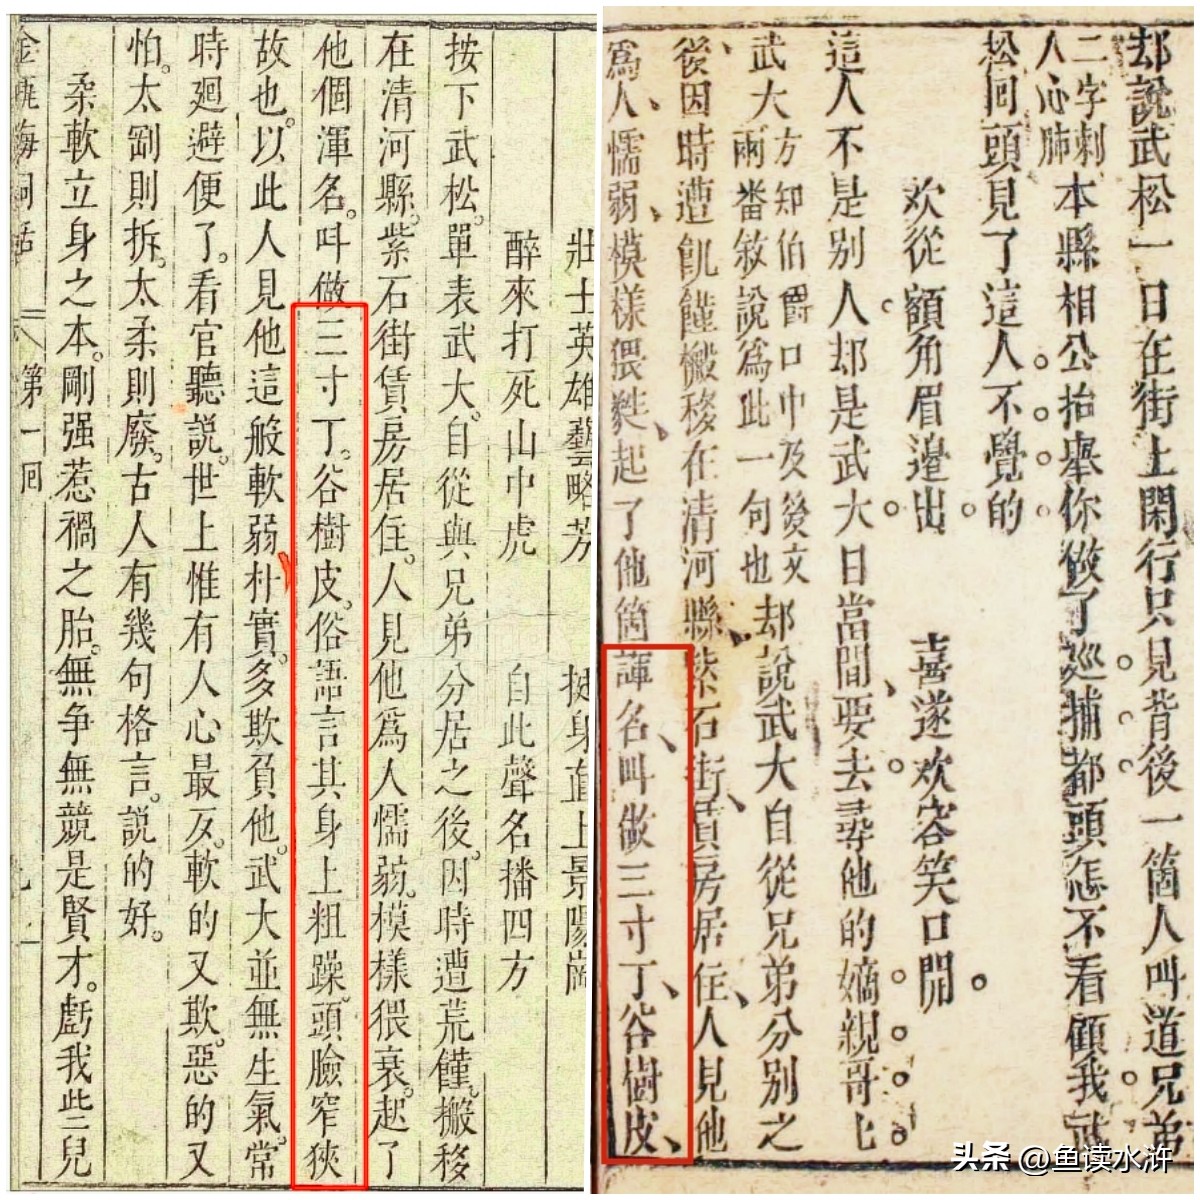 壯士英雄藝略芳　挺身直上景陽岡
醉來打死山中虎　自此聲名播四方
按下武松。單表武大。自從與兄弟分居之後。因時遭荒饉。搬移
在清河縣。紫石街賃房居住。人見他爲人懦弱。模樣猥衰。起了
他個渾名。叫做三寸丁。谷樹皮。俗語言其身上粗躁。頭臉窄狹
故也。以此人見他這般軟弱朴實。多欺負他。武大並無生氣。常
時廻避便了。看官聽說。世上惟有人心最反。軟的又欺。惡的又
怕。太剛則拆。太柔則廢。古人有幾句格言。說的好。
柔軟立身之本。剛强惹禍之胎。無争無競是賢才。虧我些兒
金瓶梅詞話　第一回
却說武松一日在街上閑行只見背後一箇人叫道兄弟
二字刺人心肺本縣相公抬舉你做了巡捕都頭怎不看顧我武
松回頭見了這人不覺的
欢從額角眉邉出　喜遂欢容笑口開
這人不是别人却是武大日當間要去尋他的嫡親哥七
武大方知伯爵口中及後文兩番敘說爲此一句也却說武大自從兄弟分别之
後因時遭飢饉搬移在清河縣紫石街賃房居住人見他
爲人、懦弱、模樣猥、起了他箇諢名、叫做三寸丁、谷樹皮、
头条 @鱼读水浒